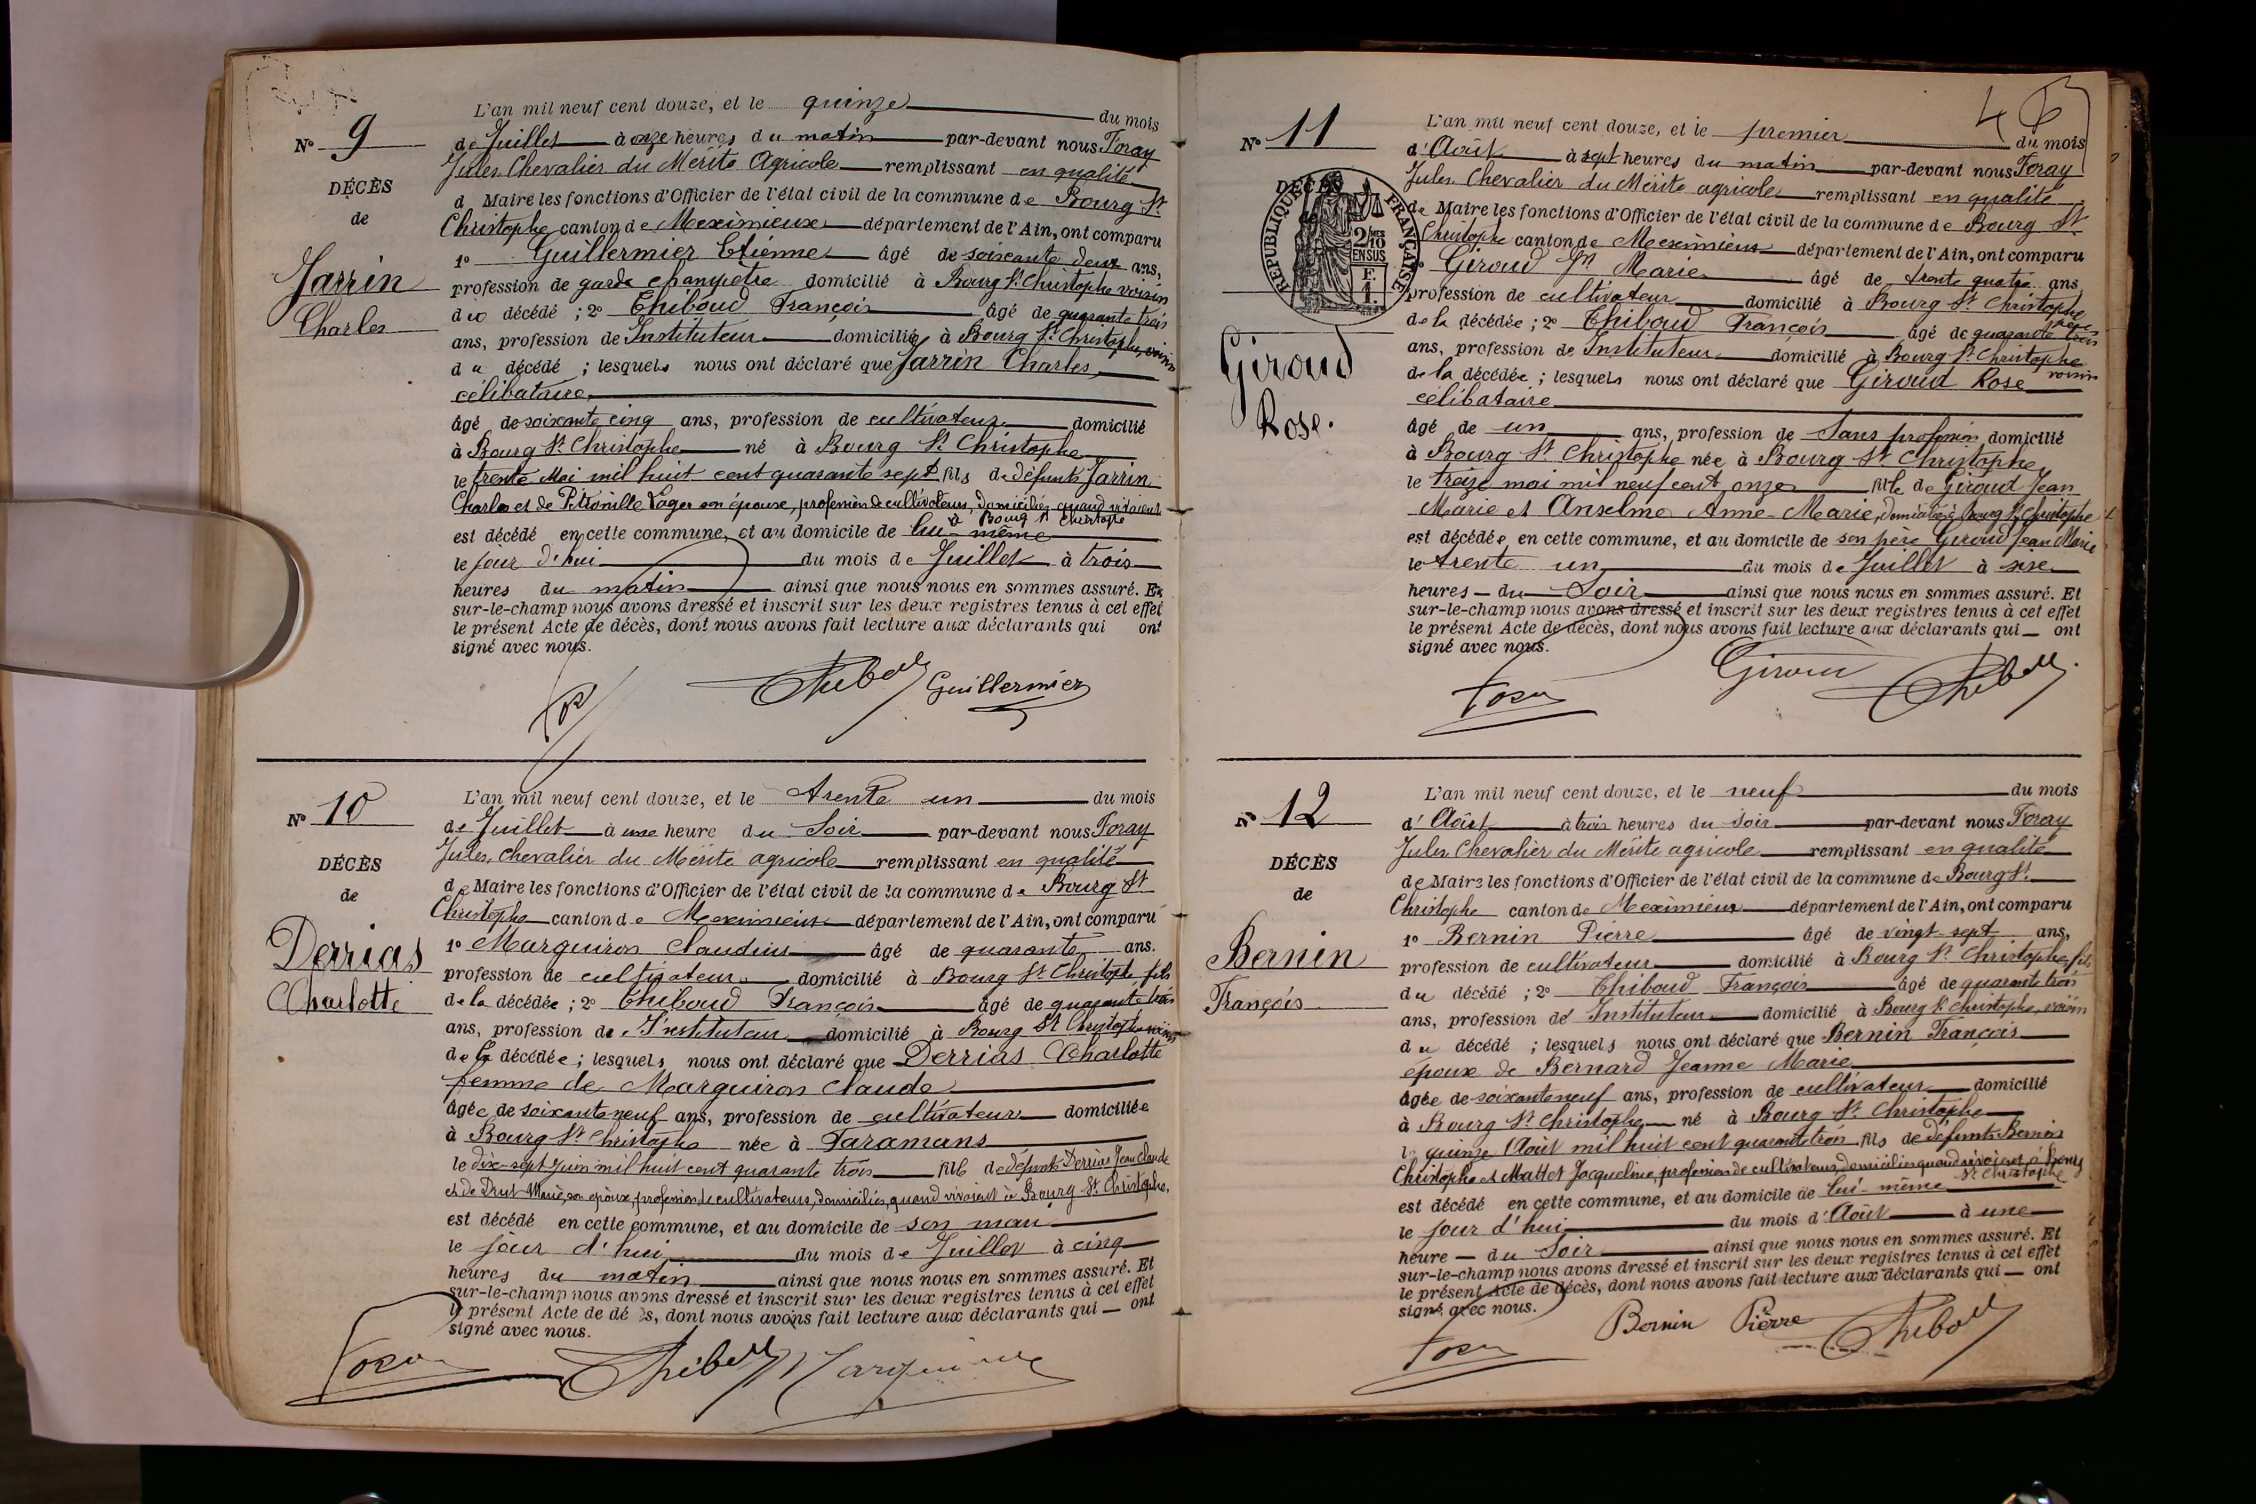 N° 9
DÉCÈS
de
Jarrin
Charles
L'an mil neuf cent douze, et le quinze du mois
de Juillet à onze heures du matin par-devant nous Foray
Jules, Chevalier du Mérite Agricole remplissant en qualité
d Maire les fonctions d'Officier de l'état civil de la commune de Bourg St
Christophe canton de Meximieux département de l'Ain, ont comparu
1° Guillermier Etienne âgé de soixante deux ans,
profession de garde champêtre domicilié à Bourg St Christophe voisin
du décédé ; 2° Thiboud François âgé de quarante trois
ans, profession de Instituteur domicilié à Bourg St Christophe, voisin
du décédé ; lesquels nous ont déclaré que Jarrin Charles
célibataire
âgé de soixante cinq ans, profession de cultivateur domicilié
à Bourg St Christophe né à Bourg St Christophe
le trente Mai mil huit cent quarante sept fils de défunts Jarrin
Charles et de Pétronille Lager son épouse, profession de cultivateurs, domiciliés quand vivaient
à Bourg St Christophe
est décédé en cette commune, et au domicile de lui-même
le jour d'hui du mois de Juillet à trois
heures du matin ainsi que nous nous en sommes assuré. Et
sur-le-champ nous avons dressé et inscrit sur les deux registres tenus à cet effet
le présent Acte de décès, dont nous avons fait lecture aux déclarants qui ont
signé avec nous.
Thiboud Guillermier
N° 10
DÉCÈS
de
Derrias
Charlotte
L'an mil neuf cent douze, et le trente un du mois
de Juillet à une heure du Soir par-devant nous Foray
Jules, chevalier du Mérite agricole remplissant en qualité
de Maire les fonctions d'Officier de l'état civil de la commune de Bourg St
Christophe canton de Meximieux département de l'Ain, ont comparu
1° Marguiron Claudius âgé de quarante ans.
profession de cultivateur domicilié à Bourg St Christophe fils
de la décédée ; 2° Thiboud François âgé de quarante trois
ans, profession de Instituteur domicilié à Bourg St Christophe voisin
de la décédée ; lesquels nous ont déclaré que Derrias Charlotte
femme de Marguiron Claude
âgée de soixante neuf ans, profession de cultivateur domiciliée
à Bourg St Christophe née à Faramans
le dix-sept Juin mil huit cent quarante trois fille de défunts Derrias Jean Claude
et de Drut Marie, son épouse, profession de cultivateurs, domiciliés, quand vivaient à Bourg St Christophe,
est décédé en cette commune, et au domicile de son mari
le jour d'hui du mois de Juillet à cinq
heures du matin ainsi que nous nous en sommes assuré. Et
sur-le-champ nous avons dressé et inscrit sur les deux registres tenus à cet effet
le présent Acte de décès, dont nous avons fait lecture aux déclarants qui — ont
signé avec nous.
Foray Thiboud Marguiron
N° 11
DÉCÈS
RÉPUBLIQUE FRANÇAISE
2/10 MES EN SUS
F. 1.
Giroud
Rose.
L'an mil neuf cent douze, et le premier du mois
d'Août à sept heures du matin par-devant nous Foray
Jules, Chevalier du Mérite agricole remplissant en qualité
de Maire les fonctions d'Officier de l'état civil de la commune de Bourg St
Christophe canton de Meximieux département de l'Ain, ont comparu
Giroud Jn Marie âgé de trente quatre ans,
profession de cultivateur domicilié à Bourg St Christophe père
de la décédée ; 2° Thiboud François âgé de quarante trois
ans, profession de Instituteur domicilié à Bourg St Christophe voisin
de la décédée ; lesquels nous ont déclaré que Giroud Rose
célibataire
âgé de un ans, profession de Sans profession domicilié
à Bourg St Christophe née à Bourg St Christophe
le treize mai mil neuf cent onze fille de Giroud Jean
Marie et Anselme Anne-Marie, domiciliés à Bourg St Christophe
est décédée en cette commune, et au domicile de son père Giroud Jean Marie
le trente un du mois de Juillet à six
heures — du Soir ainsi que nous nous en sommes assuré. Et
sur-le-champ nous avons dressé et inscrit sur les deux registres tenus à cet effet
le présent Acte de décès, dont nous avons fait lecture aux déclarants qui — ont
signé avec nous.
Foray Giroud Thiboud
N° 12
DÉCÈS
de
Bernin
François
L'an mil neuf cent douze, et le neuf du mois
d'Août à trois heures du soir par-devant nous Foray
Jules, Chevalier du Mérite agricole remplissant en qualité
de Maire les fonctions d'Officier de l'état civil de la commune de Bourg St
Christophe canton de Meximieux département de l'Ain, ont comparu
1° Bernin Pierre âgé de vingt-sept ans,
profession de cultivateur domicilié à Bourg St Christophe, fils
du décédé ; 2° Thiboud François âgé de quarante trois
ans, profession de Instituteur domicilié à Bourg St Christophe, voisin
du décédé ; lesquels nous ont déclaré que Bernin François
époux de Bernard Jeanne Marie
âgée de soixante neuf ans, profession de cultivateur domicilié
à Bourg St Christophe né à Bourg St Christophe
le quinze Août mil huit cent quarante trois fils de défunts Bernin
Christophe et Mattet Jacqueline, profession de cultivateurs, domiciliés quand vivaient à Bourg
St Christophe
est décédé en cette commune, et au domicile de lui-même
le jour d'hui du mois d'Août à une
heure — du Soir ainsi que nous nous en sommes assuré. Et
sur-le-champ nous avons dressé et inscrit sur les deux registres tenus à cet effet
le présent Acte de décès, dont nous avons fait lecture aux déclarants qui — ont
signé avec nous.
Foray Bernin Pierre Thiboud